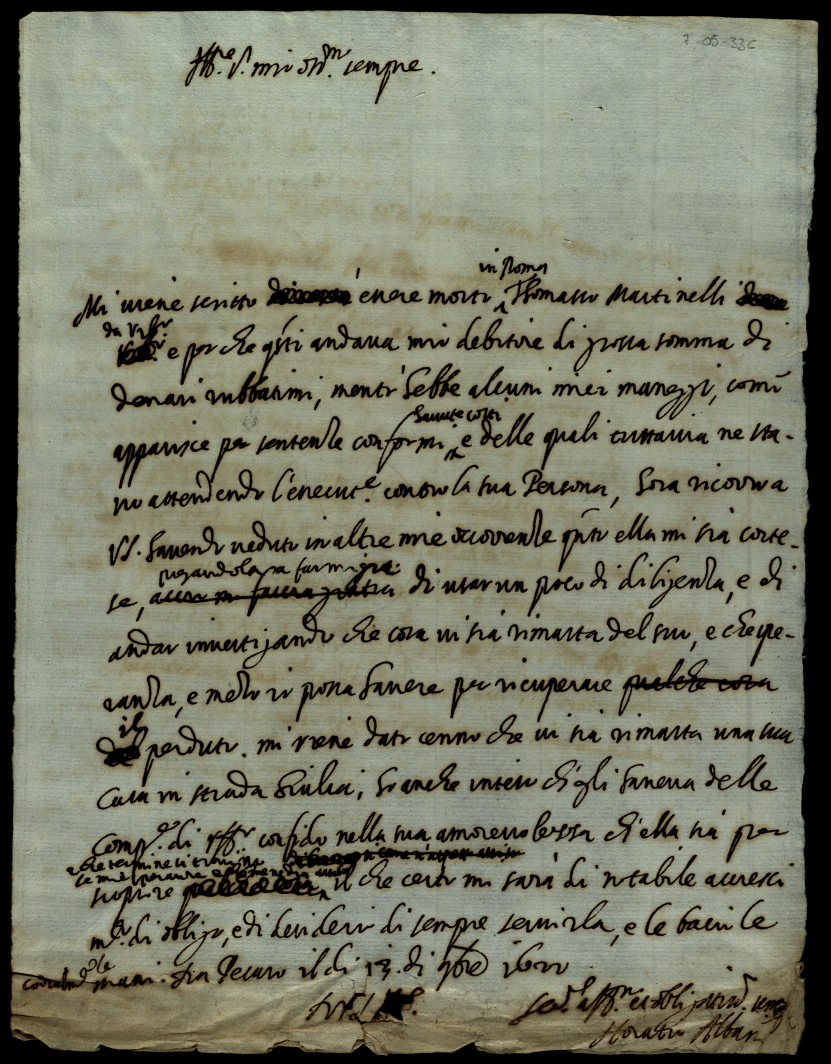 7-05-336
Ill.re S.r mio oss.mo sempre.
in Roma
Mi viene scritto essere morto Thomasso Martinelli
da Urb.o
e perche q'sti andava mio debitore di grossa somma di
denari rubbatimi, mentr'hebbe alcuni miei maneggi, com'
havute costì
apparisce per sentenze conformi, e delle quali tuttavia ne sta-
vo attendendo l'esecut.e contro la sua Persona, hora ricorro a
VS. havendo veduto in altre mie occorrenze q'nto ella mi sia corte-
pregandola a farmi gra.
se, di usar un poco di diligenza, e di
andar investigando che cosa vi sia rimasta del suo, e che spe-
ranza, e modo io possa havere per ricuperare qualche cosa
il
perduto. mi viene dato cenno che vi sia rimasta una sua
Casa in strada Giulia, ho anche inteso ch'egli haveva delle
Comp.e di uff.i confido nella sua amorevolezza ch'ella sia per
scoprire il che certo mi sarà di notabile accresci
m.to di obligo, e di desiderio di sempre servirla, e le bacio le
mani. Da Pesaro il di 13 di 9bre 1622
Horatio Alban